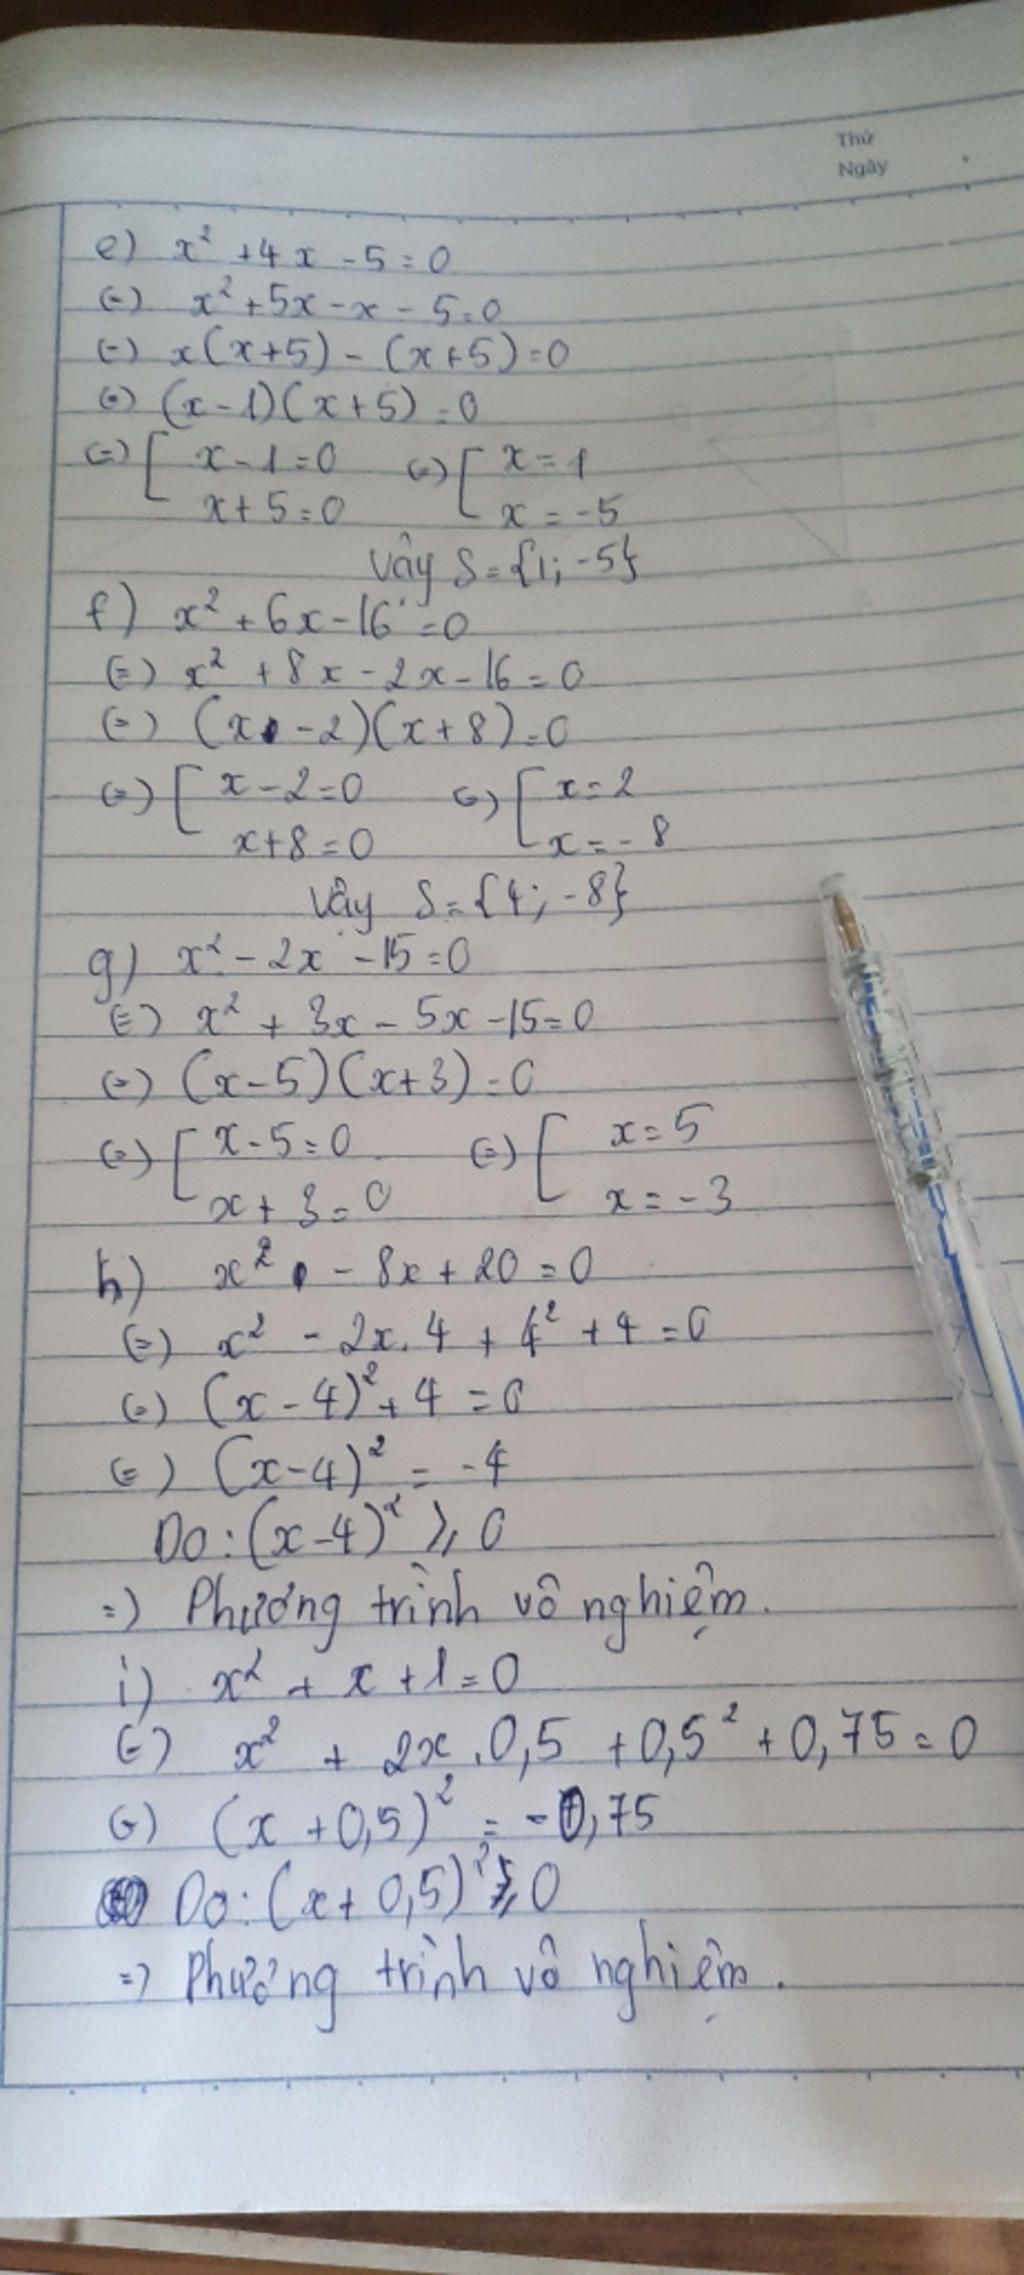 Thứ
Ngày
e) x² + 4x - 5 = 0
(=) x² + 5x - x - 5 = 0
(=) x(x+5) - (x+5) = 0
(=) (x-1)(x+5) = 0
(=) [ x - 1 = 0 (=) [ x = 1
x + 5 = 0 x = -5
Vậy S = {1; -5}
f) x² + 6x - 16 = 0
(=) x² + 8x - 2x - 16 = 0
(=) (x - 2)(x + 8) = 0
(=) [ x - 2 = 0 (=) [ x = 2
x + 8 = 0 x = -8
Vậy S = {4; -8}
g) x² - 2x - 15 = 0
(=) x² + 3x - 5x - 15 = 0
(=) (x-5)(x+3) = 0
(=) [ x - 5 = 0 (=) [ x = 5
x + 3 = 0 x = -3
h) x² - 8x + 20 = 0
(=) x² - 2x.4 + 4² + 4 = 0
(=) (x - 4)² + 4 = 0
(=) (x-4)² = -4
Do: (x-4)² ≥ 0
=) Phương trình vô nghiệm.
i) x² + x + 1 = 0
(=) x² + 2x.0,5 + 0,5² + 0,75 = 0
(=) (x + 0,5)² = -0,75
Do: (x + 0,5)² ≥ 0
=) Phương trình vô nghiệm.